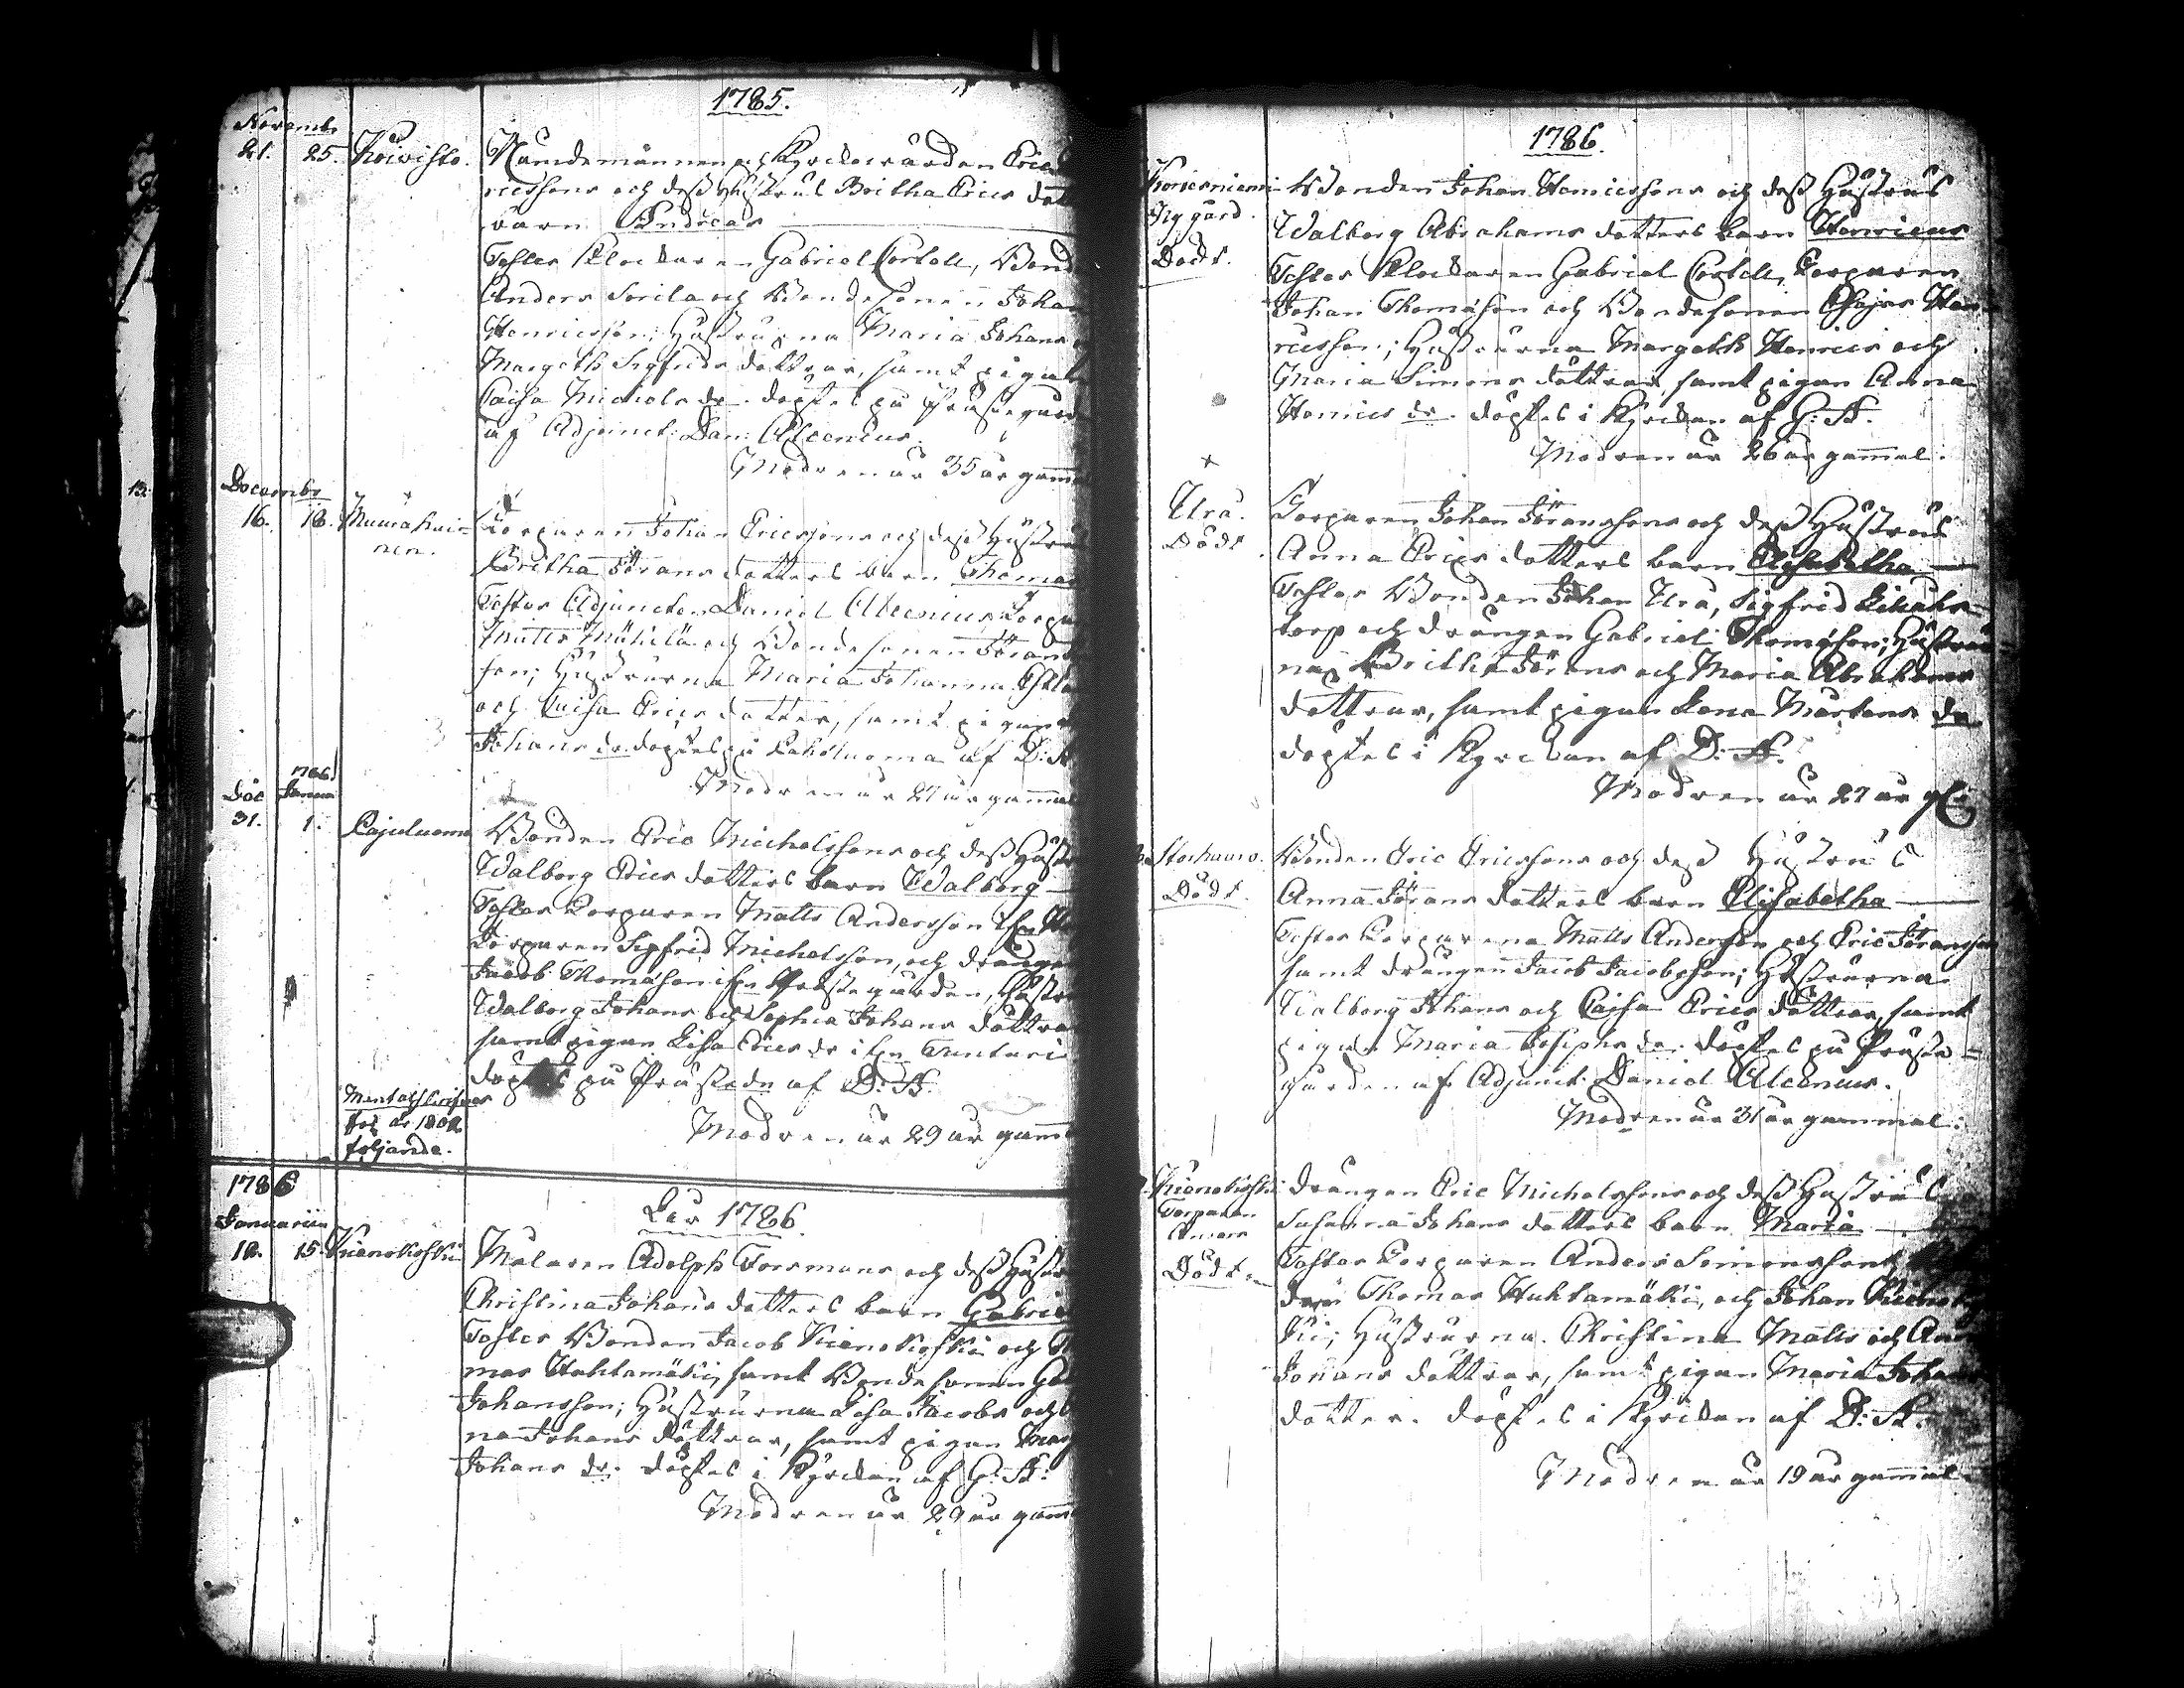 1785.
Novembr
21. 25. Koivisto. Nämdemannen och Kyrckowärden Eric
ricssons och dess Hustrus Britha Erics dott
barn Andreas
Testes Klockaren Gabriel Cortell, Bond
Anders Sorila och Bondesonen Johan
Henricsson; Hustrurna Maria Johans
Margeth Sigfrids döttrar, samt pigan
Caisa Michels dr. döptes på Prästegård
af Adjunct: Dan: Alcenius.
Modren är 35 år gam̅
Decembr
16. 18. Muurahai- Torparen Johan Ericssons och dess Hustru
nen. Britha Jörans dotters barn Thomas
Testes Adjuncten Daniel Alcenius Torpa
Matts Mäkilä och Bondesonen Jöran
son; Hustrurna Maria Johanna
och Caisa Erics döttrar, samt pigan
Johans dr. döptes på Lahdluoma af D: A
Modren är 27 år gammal
1786
Dec Januar
31. 1. Cajuluoma Bonden Eric Michelssons och dess Hustru
Walborg Erics dotters barn Walborg
Testes Torparen Matts Andersson
Torparen Sigfrid Michelsson, och drängen
Jacob Thomasson ifrn Prästegården, Hustru
Walborg Johans och Sophia Johans döttrar
samt pigan Lisa Erics dr ifrn Tunturi
döptes på Prästegdn af D: A.
Modren är 29 år gam̅
Mentalskrifves
för år 1802
följande.
1786
Januarii Åar 1786.
12. 15. Kuenokoski Målaren Adolph Forsmans och dess Hustru
Christina Johans dotters barn Gabriel
Testes Bonden Jacob Kuenokoski och
mas Huhtamäki, samt Bondesonen Ga
Johansson; Hustrurna Lisa Jacobs och
na Johans döttrar, samt pigan Marg
Johans dr. döptes i Kyrckan af G: A:
Modren är 29 år gam̅
1786.
Koriesniemi Bonden Johan Henricssons och dess Hustrus
Ny gård. Walborg Abrahams dotters barn Henricus
Dödt. Testes Klockaren Gabriel Cortell, Torparen
Johan Thomasson och Bondesonen Hen
ricsson; Hustrurna Margeth Henrics och
Maria Simons döttrar, samt pigan Anna
Henrics dr. döptes i Kyrckan af G: A.
Modren är 26 år gammal.
Ura. Torparen Johan Jöranssons och dess Hustrus
Dödt. Anna Erics dotters barn Elisabetha
Testes Bonden Johan Ura, Sigfrid
torp och drängen Gabriel Thomasson; Hustrur
na Britha Jörans och Maria Abrahams
döttrar, samt pigan Lena Mårtens dr
döptes i Kyrckan af D: A.
Modren är 27 år gl:
Storhauro. Bonden Eric Ericssons och dess Hustrus
Dödt. Anna Jörans dotters barn Elisabetha
Testes Torparena Matts Andersson och Eric Jöransson
samt drängen Jacob Jacobsson; Hustrurna
Walborg Johans och Caisa Erics döttrar, samt
pigan Maria Josephs dr. döptes på Präste-
gården af Adjunct: Daniel Alcenius.
Modren är 31 år gammal.
Kuenokoski Drängen Eric Michelssons och dess Hustrus
Torparen Susanna Johans dotters barn Maria
Anders Testes Torparen Anders Simonsson,
Dödt. Thomas Huhtamäki, och Johan Kuenokos
ki; Hustrurna Christina Matts och Ann
Johans döttrar, samt pigan Maria Johans
dotter. döptes i Kyrckan af D: A.
Modren är 19 år gammal